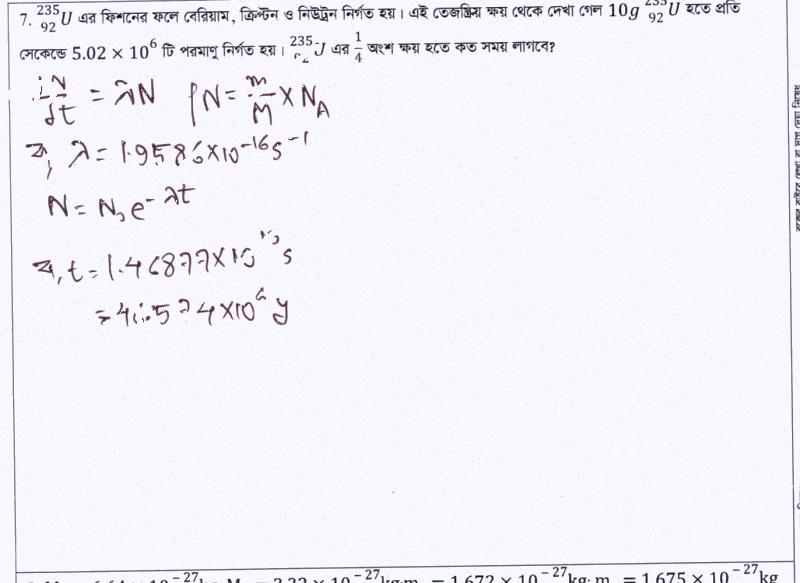 7. ²³⁵₉₂U এর ফিশনের ফলে বেরিয়াম, ক্রিপ্টন ও নিউট্রন নির্গত হয়। এই তেজস্ক্রিয় ক্ষয় থেকে দেখা গেল 10g ²³⁵₉₂U হতে প্রতি
সেকেন্ডে 5.02 × 10⁶ টি পরমাণু নির্গত হয়। ²³⁵U এর 1/4 অংশ ক্ষয় হতে কত সময় লাগবে?
dN/dt = λN | N = m/M × N_A
বা, λ = 1.9586×10⁻¹⁶ s⁻¹
N = N₀e^(-λt)
বা, t = 1.46877×10 s
×10⁶ y
× 10⁻²⁷kg·m = 1.672 × 10⁻²⁷kg·m = 1.675 × 10⁻²⁷kg